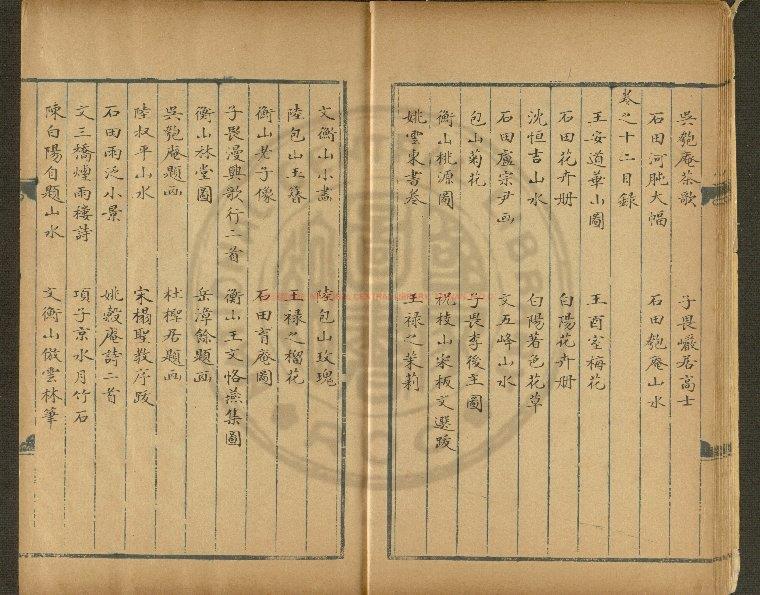 吳匏庵茶歌 子畏巖居高士
石田河肫大幅 石田匏庵山水
卷之十二目錄
王安道華山圖 王酉室梅花
石田花卉册 白陽花卉册
沈恒吉山水 白陽著色花草
石田盧宗尹画 文五峰山水
包山菊花 子畏李後主圖
衡山桃源圖 祝枝山宋板文選跋
姚雲東書卷 王禄之茉莉
文衡山小畫 陸包山玫瑰
陸包山玉簪 王禄之榴花
衡山老子像 石田有庵圖
子畏漫興歌行二首 衡山王文恪燕集圖
衡山林堂圖 岳漳餘題画
吳匏庵題画 杜檉居題画
陸叔平山水 宋榻聖教序跋
石田雨泛小景 姚縠庵詩二首
文三橋煙雨樓詩 項子京水月竹石
陳白陽自題山水 文衡山倣雲林筆